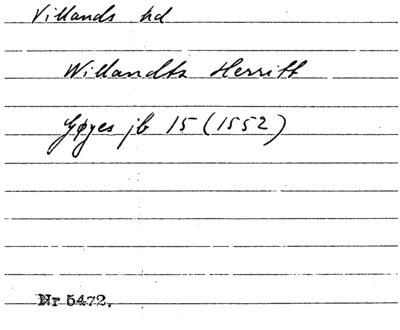 Villands hd
Willandtz Herritt
Gøyes jb 15 (1552)
Nr 5472.